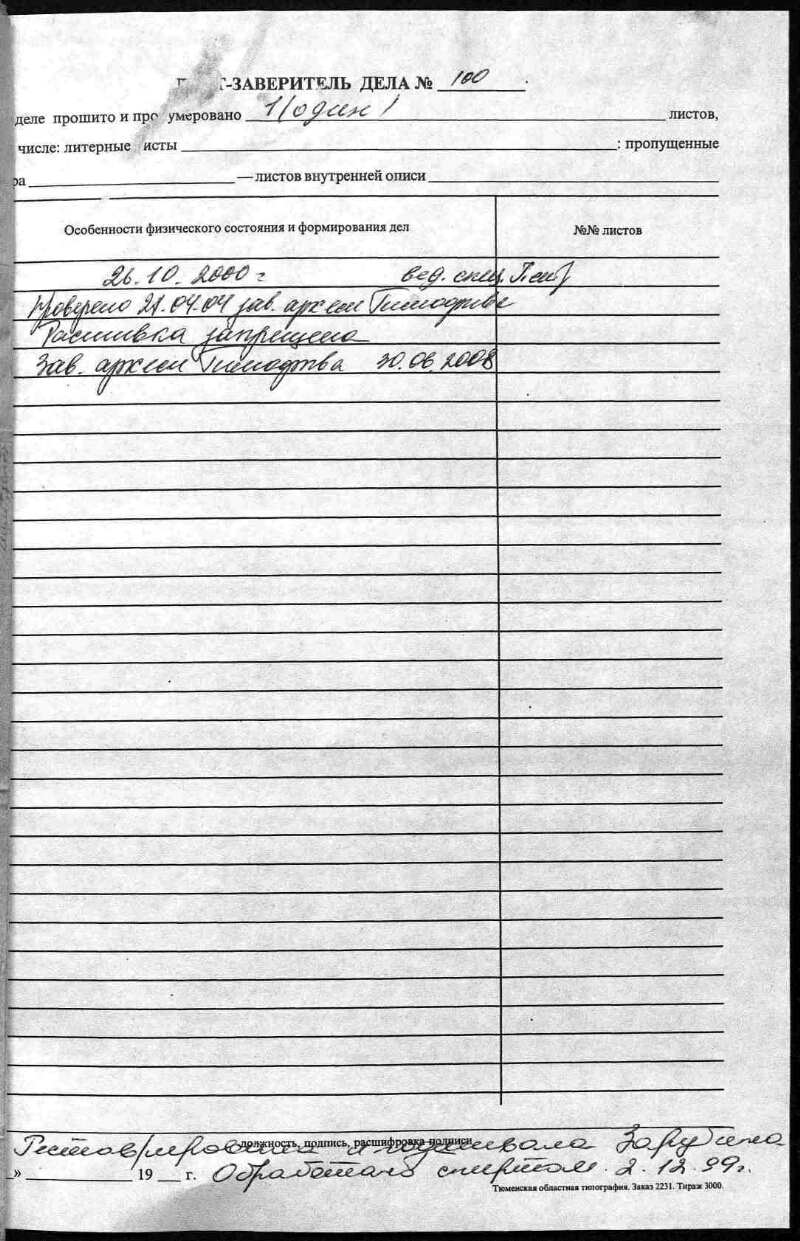 Т-ЗАВЕРИТЕЛЬ ДЕЛА № 100
деле прошито и про умеровано 1 (один) листов,
числе: литерные исты : пропущенные
ра — листов внутренней описи
Особенности физического состояния и формирования дел №№ листов
26.10.2000 г вед. спец.
Проверено 21.04.04 зав. арх
Расшивка запрещена
Зав. арх 30.06.2008
должность, подпись, расшифровка подписи
Реставрировала и подшивала Зарубина
» 19 г. Обработано спиртом. 2.12.99г.
Тюменская областная типография. Заказ 2231. Тираж 3000.